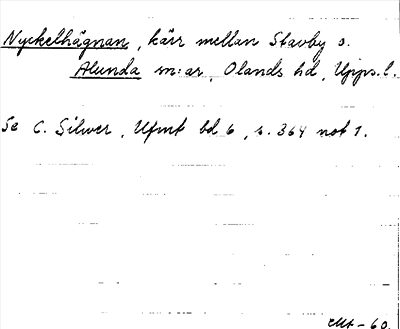 Nyckelhägnan, kärr mellan Stavby o.
Alunda m:ar, Olands hd, Upps.l.
Se C. Silwer, Ufmt bd 6, s. 364 not 1.